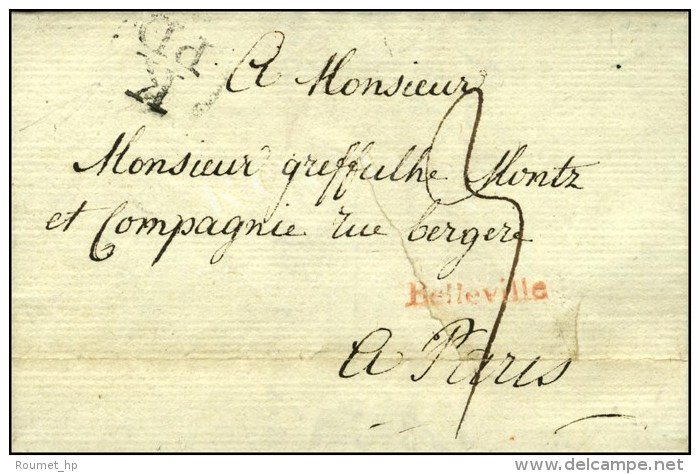 PD
K
A Monsieur
Monsieur greffulhe Montz
et Compagnie rue bergere
Belleville
A Paris
3
Roumet_hp
delcampe.net